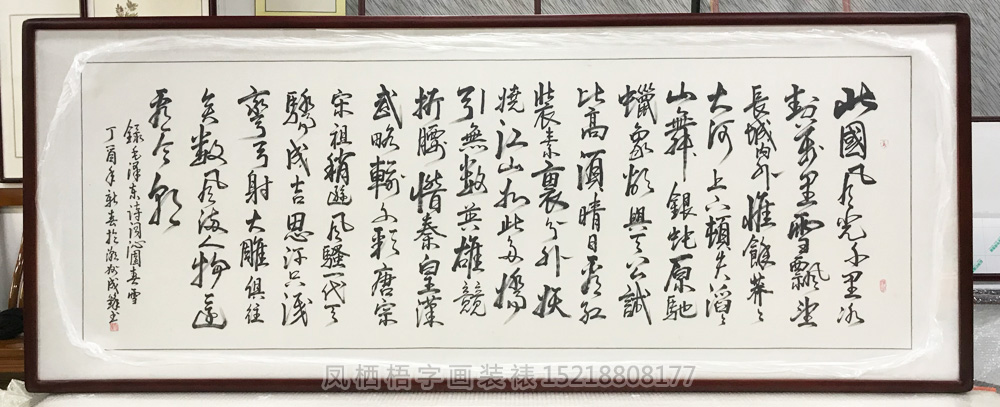 北國風光千里冰
封萬里雪飄望
長城内外惟餘莽〻
大河上下頓失滔〻
山舞銀蛇原馳
蠟象欲與天公試
比高須晴日看紅
裝素裹分外妖
嬈江山如此多嬌
引無數英雄競
折腰惜秦皇漢
武略輸文采唐宗
宋祖稍遜風騷一代天
驕成吉思汗只識
彎弓射大雕俱往
矣數風流人物還
看今朝
錄毛澤東诗词沁園春雪
丁酉年新春於
凤栖梧字画装裱15218808177